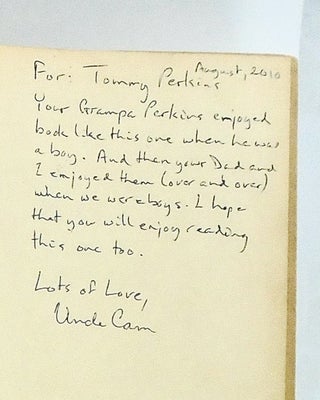 August, 2010
For: Tommy Perkins
Your Grampa Perkins enjoyed
book like this one when he was
a boy. And then your Dad and
I enjoyed them (over and over)
when we were boys. I hope
that you will enjoy reading
this one too.
Lots of Love,
Uncle Cam